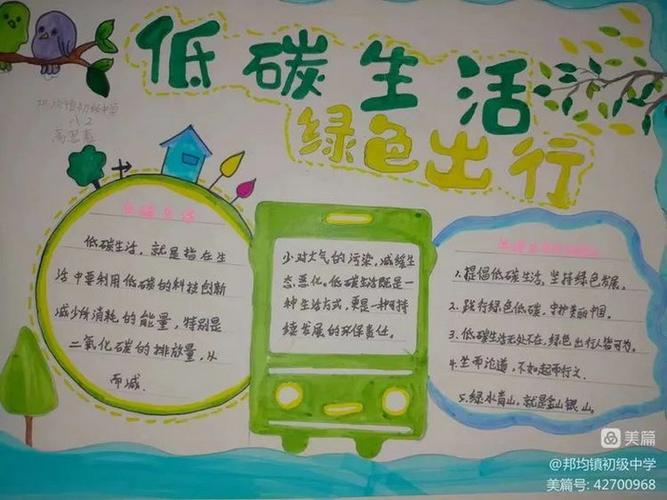 低碳生活
绿色出行
邦均镇初级中学
八2
低碳生活
低碳生活，就是指在生
活中要利用低碳的科技创新
减少所消耗的能量，特别是
二氧化碳的排放量，从
而减
少对大气的污染，减缓生
态恶化。低碳生活既是一
种生活方式，更是一种可持
续发展的环保责任。
1.提倡低碳生活，坚持绿色发展。
2.践行绿色低碳，守护美丽中国。
3.低碳生活无处不在，绿色出行人皆可为。
4.坐而论道，不如起而行之。
5.绿水青山，就是金山银山。
美篇
@邦均镇初级中学
美篇号: 42700968